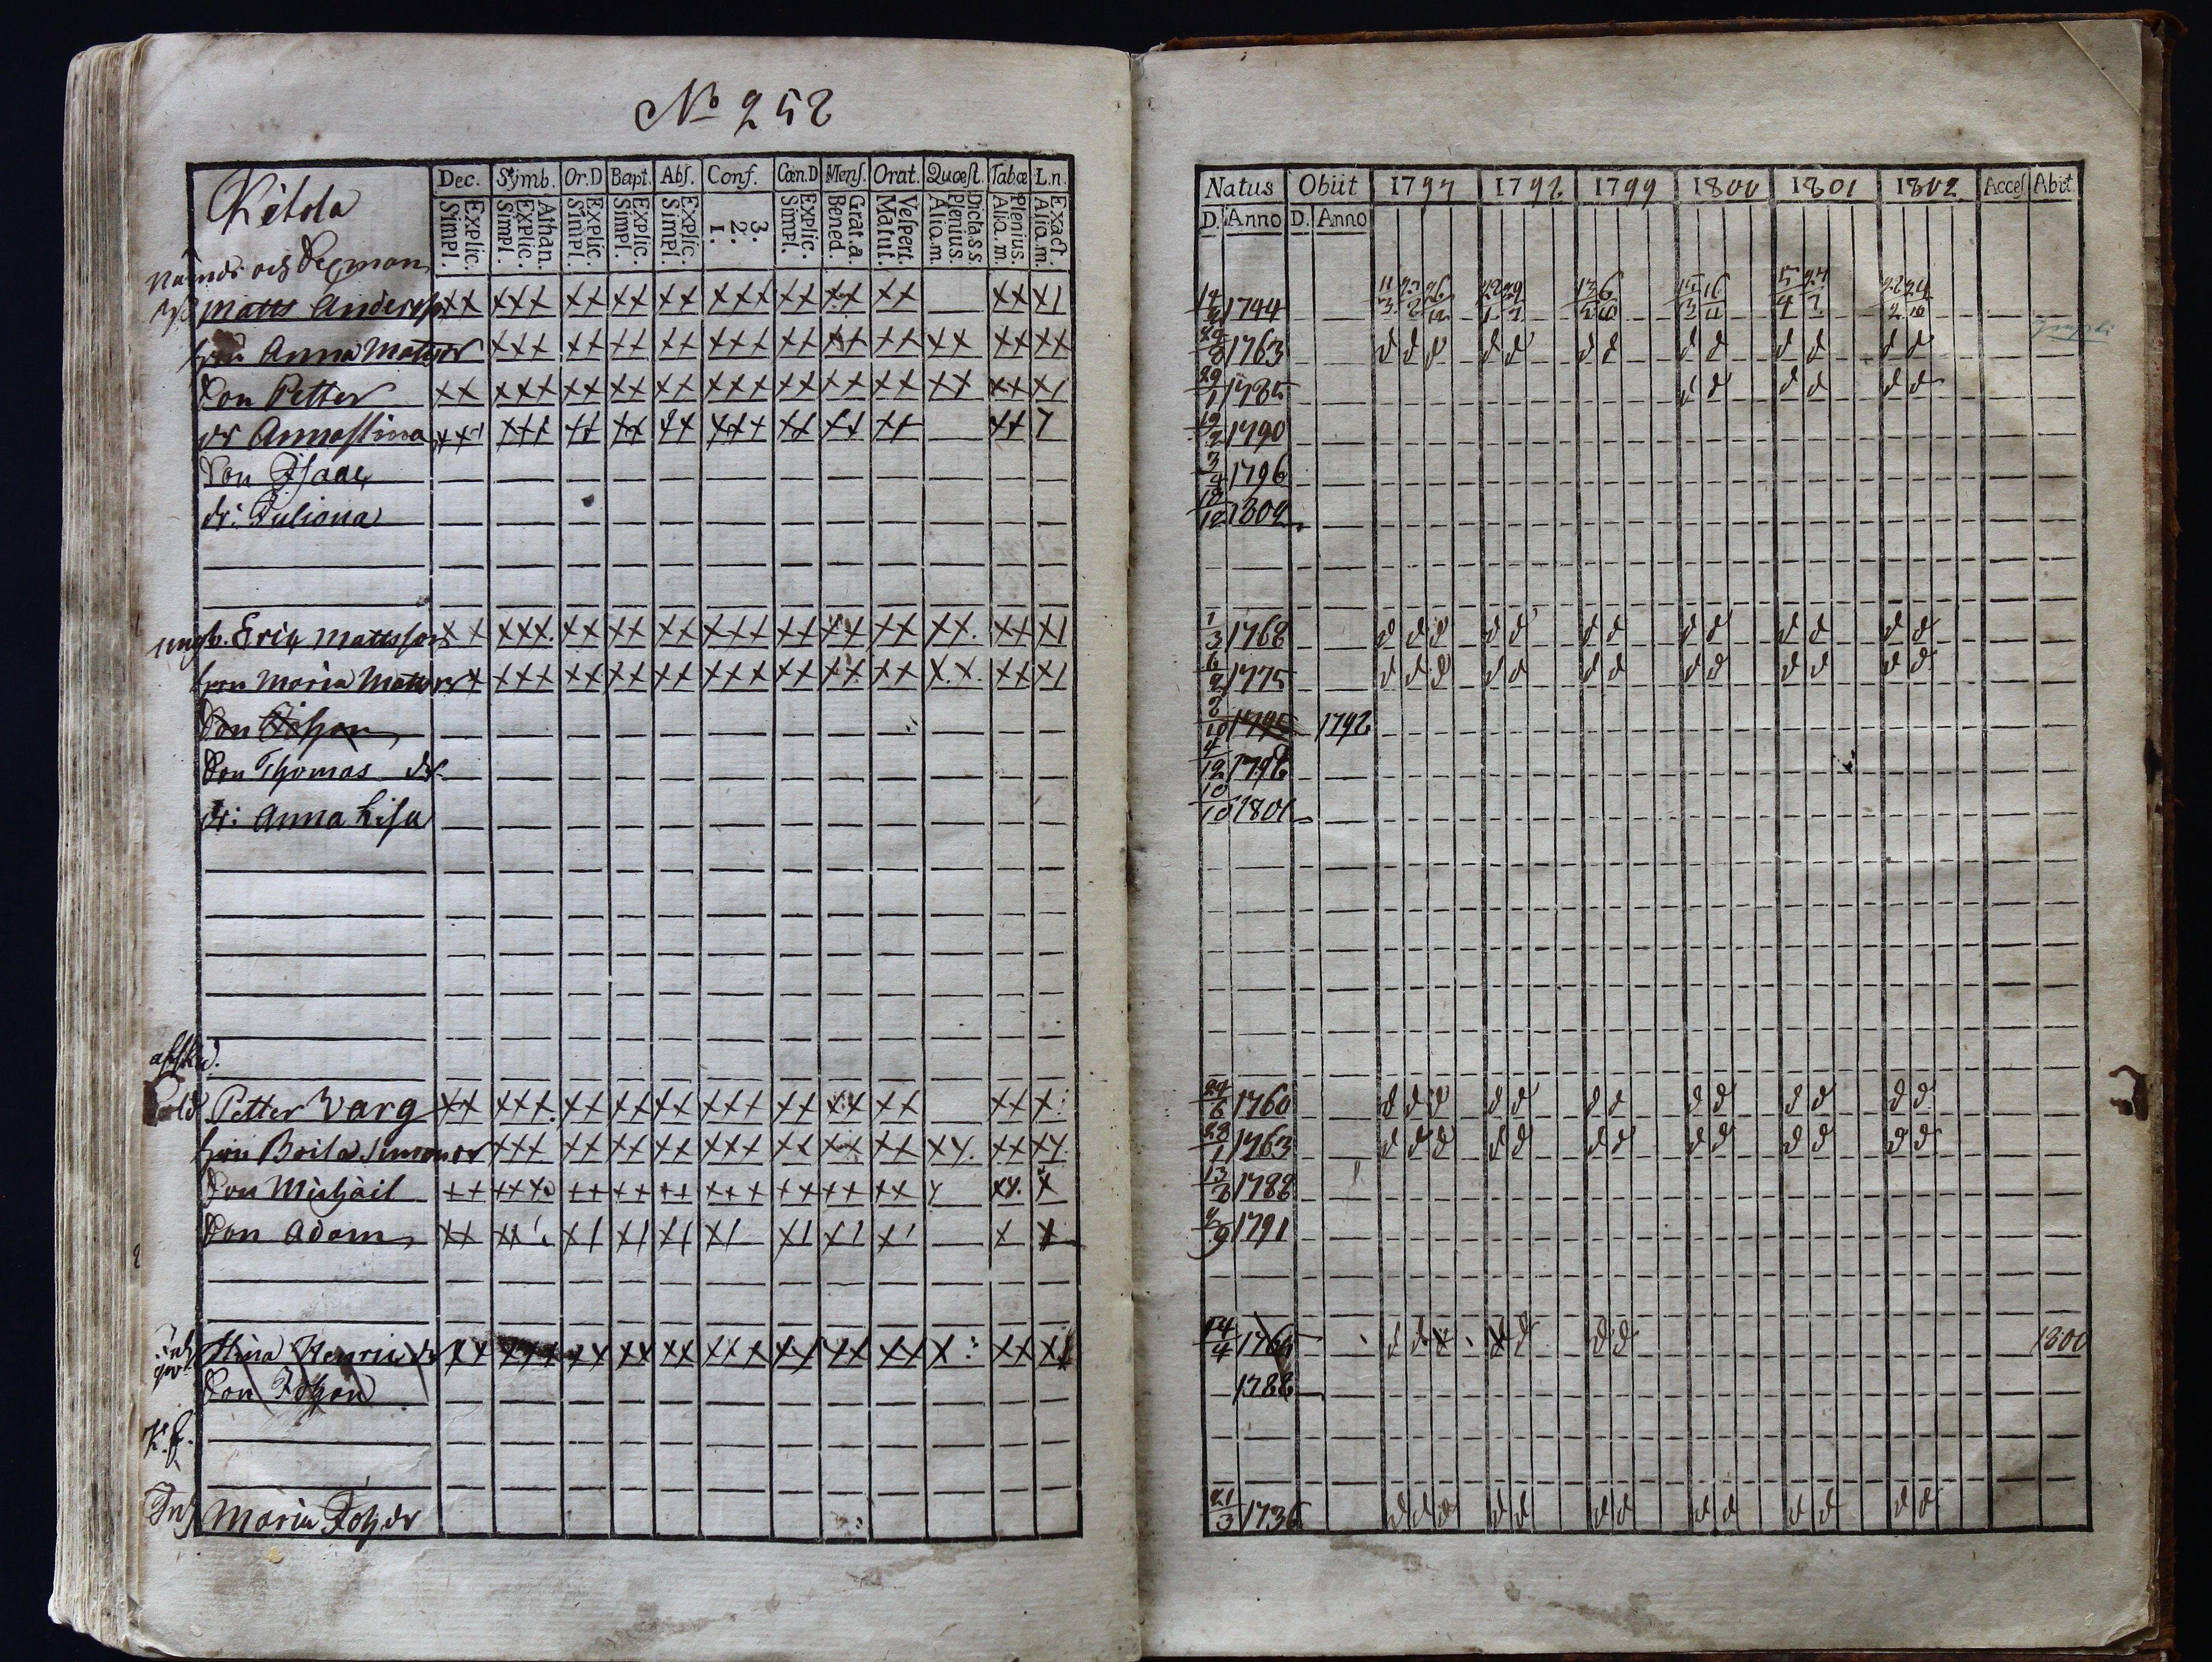 No 252
Dec. Symb. Or.D Bapt. Abſ. Conf. Cœn.D Menſ. Orat. Quœſt. Tabœ L.n.
Explic. Simpl. Athan. Explic. Simpl. Explic. Simpl. Explic. Simpl. Explic. Simpl. 3. 2. 1. Explic. Simpl. Grat.a. Bened. Veſpert. Matut. Dicta.s.s. Plenius. Aliq.m. Plenius. Aliq.m. Exact. Aliq.m.
Natus Obiit 1797 1798 1799 1800 1801 1802 Acceſ Abit
D. Anno D. Anno
Kitola
Nämnds och
Matts Anderss xx xxx xx xx xx xxx xx xx xx xx x1 1744
hru Anna Mattsdr xxx xx xx xx xxx xx xx xx xx xx xx 1763 d d d d d d d d d d d d d
Son Petter xx xxx xx xx xx xxx xx xx xx xx xx x1 29/1 1785 d d d d d d
dr Annastina xx xxx xx xx xx xxx xx xx xx xx 1790
Son Isaac 3/4 1796
dr: Juliana 18/12 1802
Eric Mattsson xx xxx. xx xx xx xxx xx xx xx xx. xx x1 1/3 1768 d d d d d d d d d d d d d
hru Maria Mattsdr x xxx xx xx xx xxx xx xx xx x.x. xx x1 1775 d d d d d d d d d d d d d
Son Johan 1798
Son Thomas 4/12 1798
dr: Anna Lisa 10/10 1801
afsked.
Sold Petter Varg xx xxx. xx xx xx xxx xx xx xx xx x 1760 d d d d d d d d d d d d d
hru Beata Simonsdr xxx xx xx xx xxx xx xx xx xx. xx xx 28/1 1763 d d d d d d d d d d d d d
Son Michail xx xxx xx xx xx xxx xx xx xx x xx. x 1788
Son Adam xx xx x1 x1 x1 x1 x1 x1 x1 x x 1791
Stina Henricsdr xx xxx xx xx xx xxx xx xx xx x xx x 14/4 d d x x d d d 1800
Son Johan 1788
Inh Maria Joh.dr 21/3 1736 d d d d d d d d d d d d d